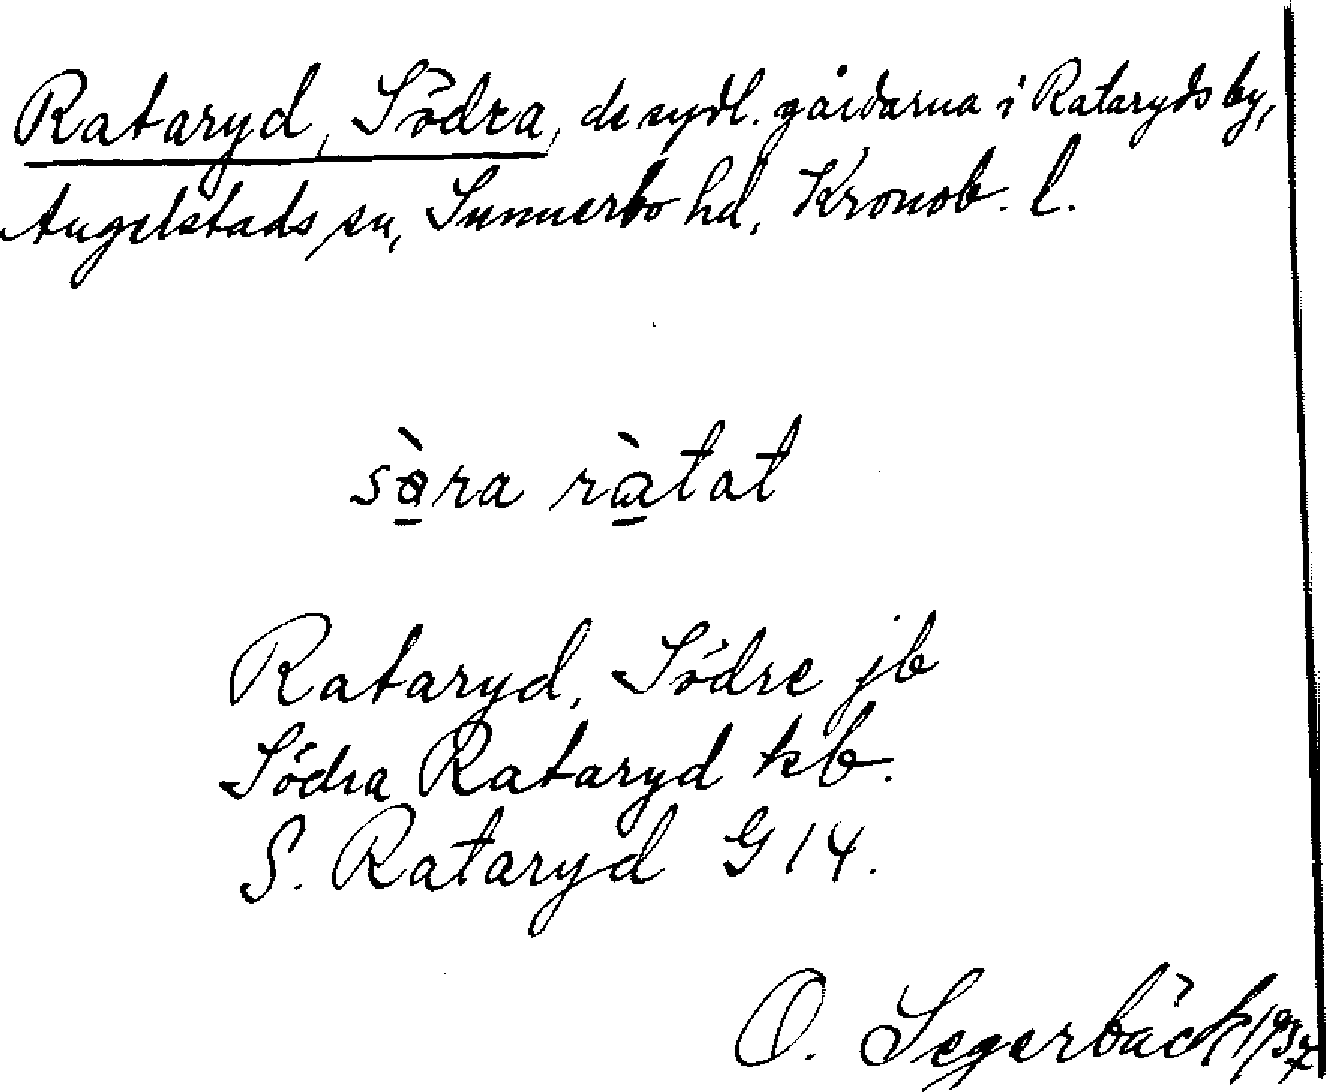 Rataryd, Södra, de sydl. gårdarna i Rataryds by,
Angelstads sn, Sunnerbo hd, Kronob. l.
sɵ̠̀ra rà̠tat
Rataryd, Södre jb
Södra Rataryd kb.
S. Rataryd G 14.
O. Segerbäck 1937